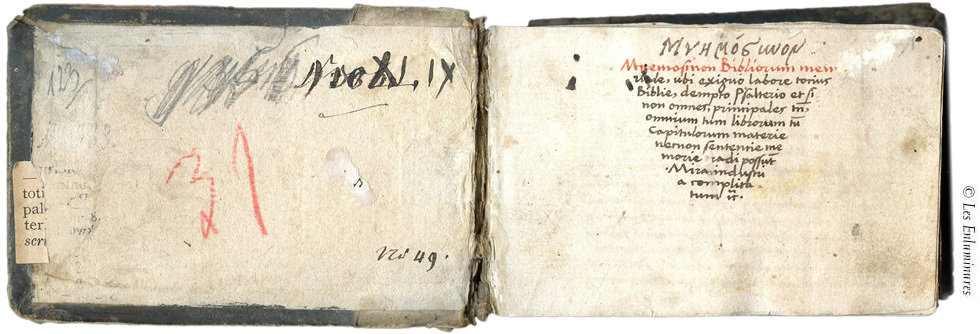 No XLIX
31
No 49.
toti
pal
ter
scri
Μνημόσινόν
Mnemosinon Bibliorum mem
riale, ubi exiguo labore totius
Biblie, dempto Psalterio et si
non omnes, principales tn̄,
omnium tum librorum tū
Capitulorum materie
necnon sententie me
morie tradi possūt
Mira industri
a complila
tum
© Les Enluminures